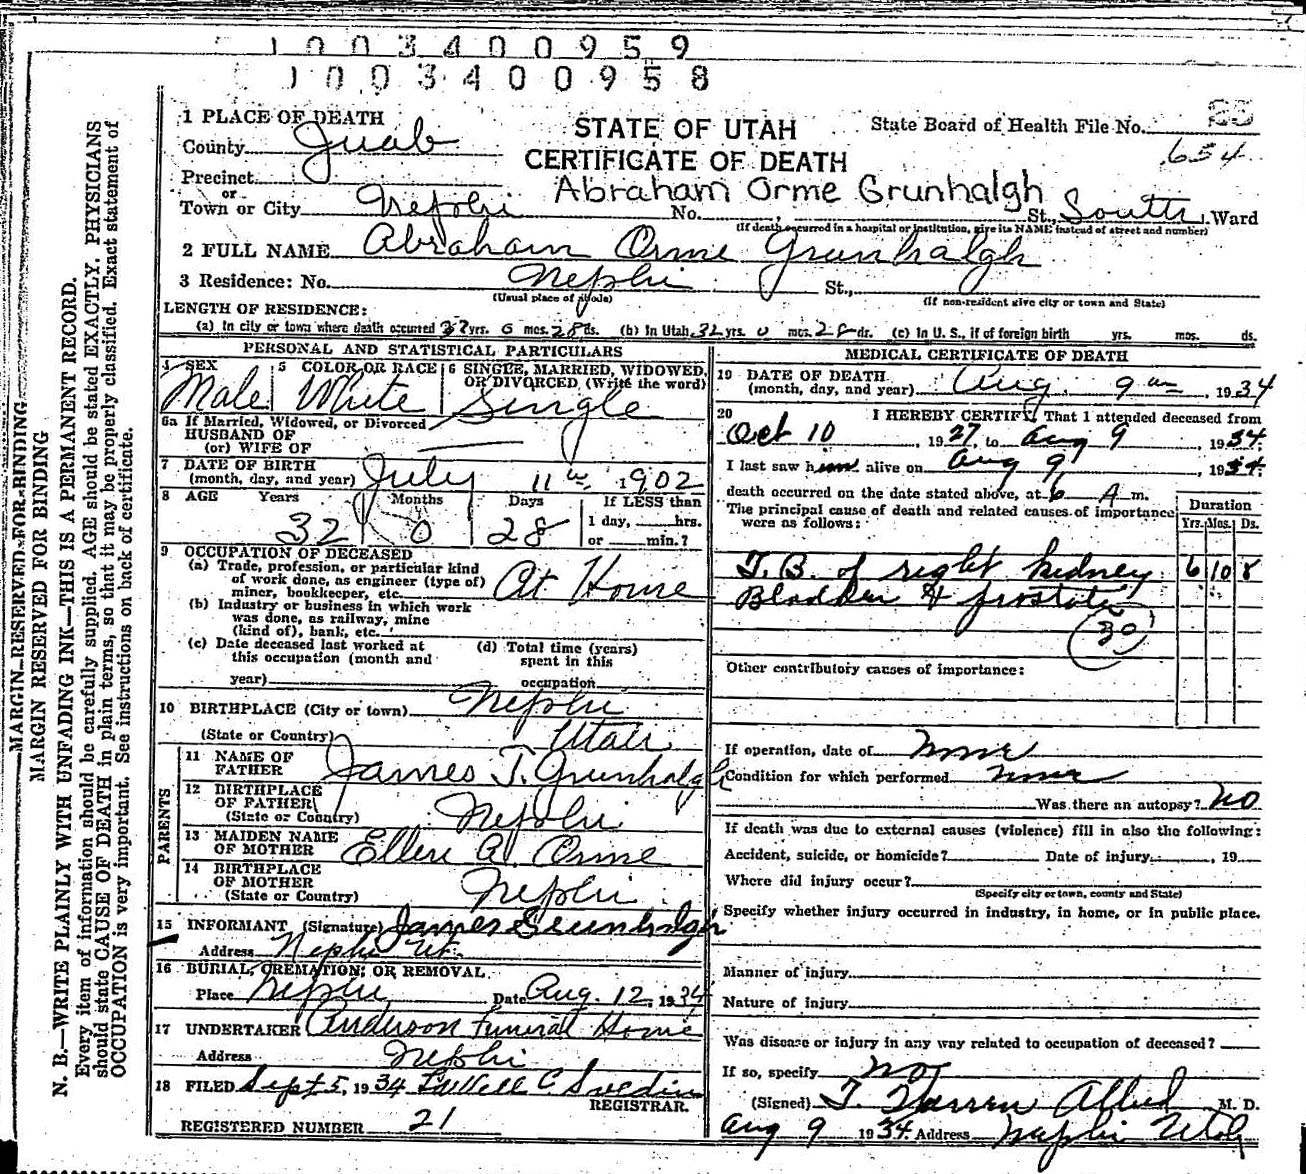 1003400959
1003400958
MARGIN RESERVED FOR BINDING
MARGIN RESERVED FOR BINDING
N. B.—WRITE PLAINLY WITH UNFADING INK—THIS IS A PERMANENT RECORD.
Every item of information should be carefully supplied. AGE should be stated EXACTLY. PHYSICIANS
should state CAUSE OF DEATH in plain terms, so that it may be properly classified. Exact statement of
OCCUPATION is very important. See instructions on back of certificate.
STATE OF UTAH
CERTIFICATE OF DEATH
State Board of Health File No. 25
654
1 PLACE OF DEATH
County Juab
Precinct
or
Abraham Orme Grunhalgh
Town or City Nephi No. , St., South Ward
(If death occurred in a hospital or institution, give its NAME instead of street and number)
2 FULL NAME Abraham Orme Grunhalgh
3 Residence: No. Nephi St.,
(Usual place of abode) (If non-resident give city or town and State)
LENGTH OF RESIDENCE:
(a) In city or town where death occurred 32 yrs. 0 mos. 28 ds. (b) In Utah 32 yrs. 0 mos. 28 ds. (c) In U. S., if of foreign birth yrs. mos. ds.
PERSONAL AND STATISTICAL PARTICULARS
4 SEX Male
5 COLOR OR RACE White
6 SINGLE, MARRIED, WIDOWED, OR DIVORCED, (Write the word) Single
6a If Married, Widowed, or Divorced
HUSBAND OF
(or) WIFE OF
7 DATE OF BIRTH
(month, day, and year) July 11th 1902
8 AGE Years Months Days If LESS than
32 0 28 1 day, hrs.
or min.?
9 OCCUPATION OF DECEASED
(a) Trade, profession, or particular kind
of work done, as engineer (type of)
miner, bookkeeper, etc. At Home
(b) Industry or business in which work
was done, as railway, mine
(kind of), bank, etc.
(c) Date deceased last worked at
this occupation (month and
year)
(d) Total time (years)
spent in this
occupation
10 BIRTHPLACE (City or town) Nephi
(State or Country) Utah
PARENTS
11 NAME OF
FATHER James T. Grunhalgh
12 BIRTHPLACE
OF FATHER
(State or Country) Nephi
13 MAIDEN NAME
OF MOTHER Ellen A. Orme
14 BIRTHPLACE
OF MOTHER
(State or Country) Nephi
15 INFORMANT (Signature) James Grunhalgh
Address Nephi Ut.
16 BURIAL, CREMATION, OR REMOVAL
Place Nephi Date Aug. 12, 1934
17 UNDERTAKER Anderson Funeral Home
Address Nephi
18 FILED Sept 5, 1934
REGISTRAR.
REGISTERED NUMBER 21
MEDICAL CERTIFICATE OF DEATH
19 DATE OF DEATH
(month, day, and year) Aug. 9 , 1934
20 I HEREBY CERTIFY, That I attended deceased from
Oct 10 , 1927, to Aug 9 , 1934.
I last saw him alive on Aug 9 , 1934.
death occurred on the date stated above, at 6 A m.
The principal cause of death and related causes of importance
were as follows:
Duration
Yrs. Mos. Ds.
T. B. of right kidney 6 10 8
Bladder & prostate
30
Other contributory causes of importance:
If operation, date of none
Condition for which performed none
Was there an autopsy? No
If death was due to external causes (violence) fill in also the following:
Accident, suicide, or homicide? Date of injury , 19
Where did injury occur?
(Specify city or town, county and State)
Specify whether injury occurred in industry, in home, or in public place.
Manner of injury
Nature of injury
Was disease or injury in any way related to occupation of deceased?
If so, specify no
(Signed) T. Warren Allred M. D.
Aug 9 1934 Address Nephi Utah